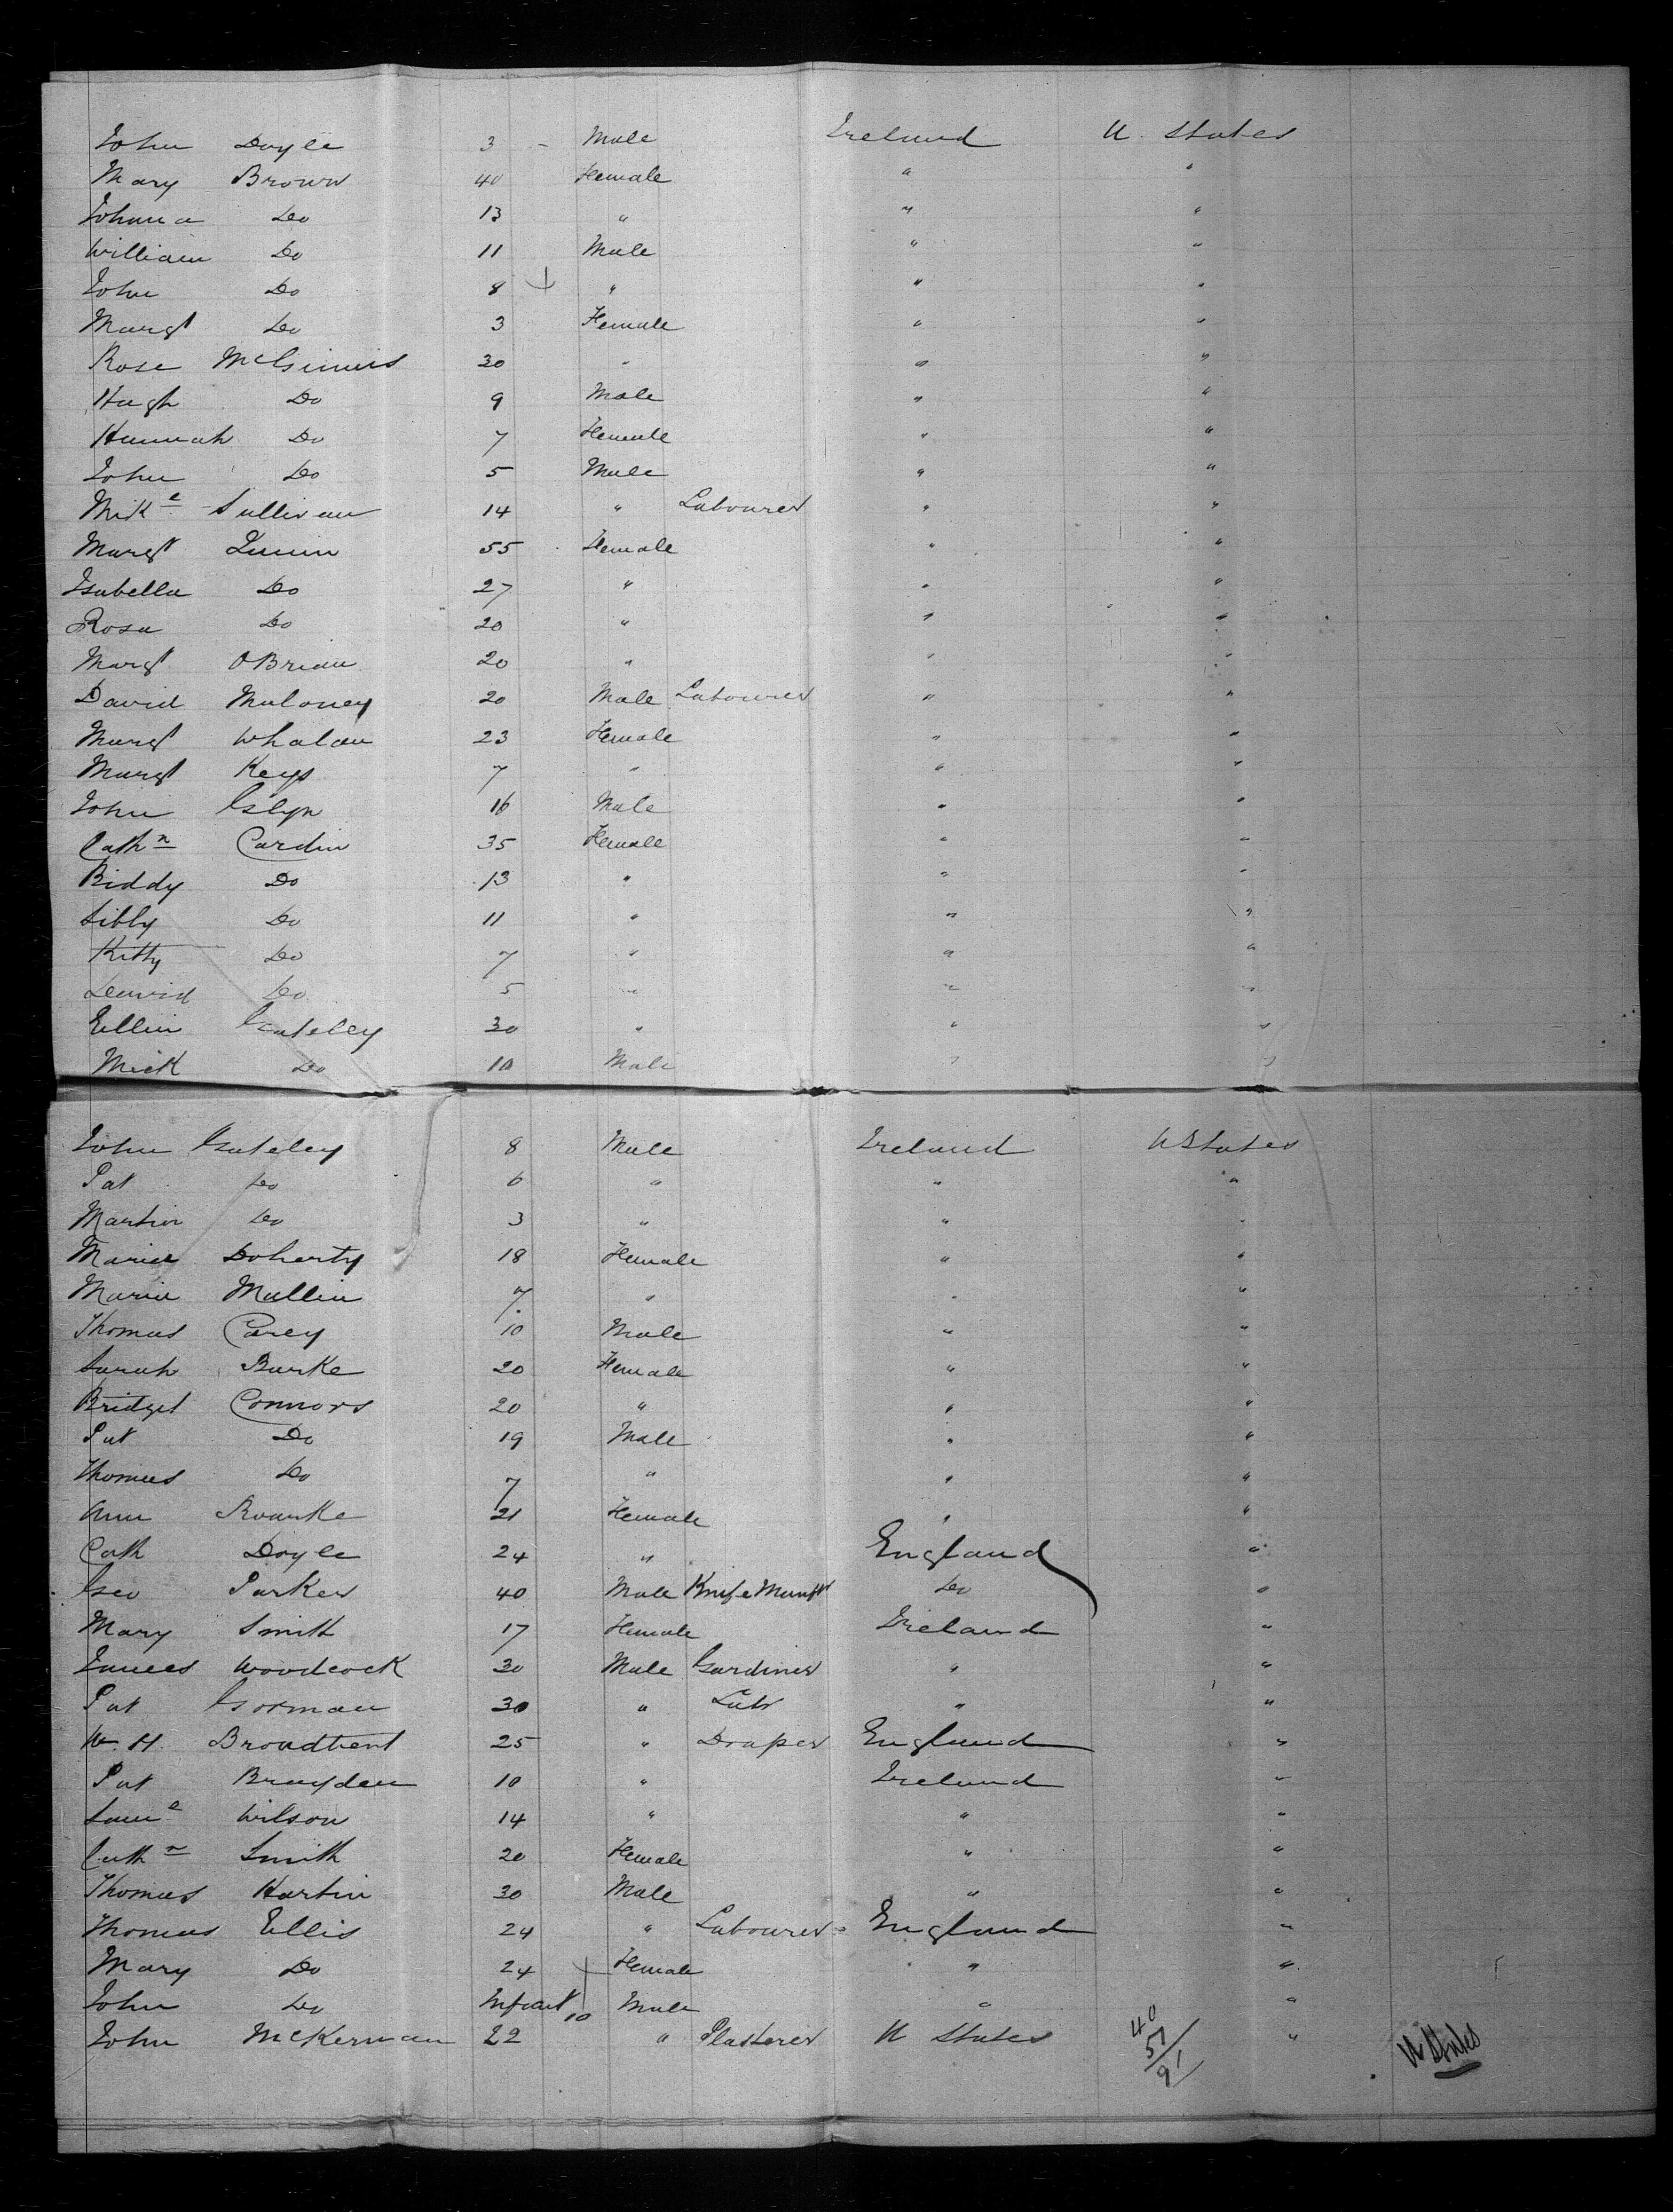 John Doyle 3 - Male Ireland U. States
Mary Brown 40 Female " "
Johana Do 13 " " "
William Do 11 Male " "
John Do 8 " " "
Margt Do 3 Female " "
Rose McGinnis 30 " " "
Hugh Do 9 Male " "
Hannah Do 7 Female " "
John Do 5 Male " "
Mikl Sullivan 14 " Labourer " "
Margt Quinn 55 Female " "
Isabella Do 27 " " "
Rosa Do 20 " " "
Margt OBrian 20 " " "
David Maloney 20 Male Labourer " "
Margt Whalan 23 Female " "
Margt Keys 7 " " "
John Glyn 16 Male " "
Cathn Cardin 35 Female " "
Biddy Do 13 " " "
Sibly Do 11 " " "
Kitty Do 7 " " "
Do 5 " " "
Ellin Gateley 30 " " "
Mick Do 10 Male " "
John Gateley 8 Male Ireland U States
Pat Do 6 " " "
Martin Do 3 " " "
Maria Doherty 18 Female " "
Maria Mullin 7 " " "
Thomas Carey 10 Male " "
Sarah Burke 20 Female " "
Bridget Connors 20 " " "
Pat Do 19 Male " "
Thomas Do 7 " " "
Ann Rourke 21 Female " "
Cath Doyle 24 " England "
Geo Parker 40 Male Knife Manft Do "
Mary Smith 17 Female Ireland "
James Woodcock 30 Male Gardiner " "
Pat Gorman 30 " Labr " "
W. H. Broadbent 25 " Draper England "
Pat Brayden 10 " Ireland "
Saml Wilson 14 " " "
Cathn Smith 20 Female " "
Thomas Hartin 30 Male " "
Thomas Ellis 24 " Labourer England "
Mary Do 24 Female " "
John Do Infant 10 Male " "
John McKernan 22 " Plasterer U States "
40
51
91
U States